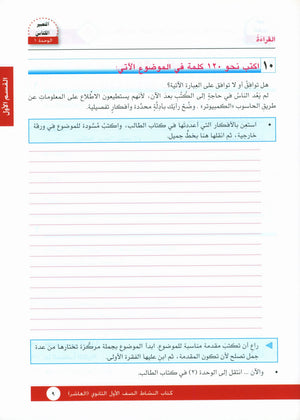 القراءة
الوحدة ١
القسم الأول
١٠ اكتب نحو ١٢٠ كلمة في الموضوع الآتي:
هل توافق أو لا توافق على العبارة الآتية؟
لم يعُد الناسُ في حاجةٍ إلى الكُتُب بعد الآن، لأنهم يستطيعون الاطّلاع على المعلومات عن
طريق الحاسوب «الكمبيوتر». وضِّحْ رأيك بأدِلَّةٍ محدّدة وأفكارٍ تفصيلية.
• استعن بالأفكار التي أعددتها في كتاب الطالب، واكتبْ مُسْوّدة للموضوع في ورقة
خارجية، ثم انقلها هنا بخطٍّ جميل.
راعِ أن تكتب مقدمة مناسبة للموضوع. ابدأ الموضوع بجملة مركزة تختارها من عدة
جمل تصلح لأن تكون المقدمة، ثم ابنِ عليها الفقرة الأولى.
• والآن ... انتقل إلى الوحدة (٢) في كتاب الطالب.
كتاب النشاط الصف الأول الثانوي (العاشر)
٩